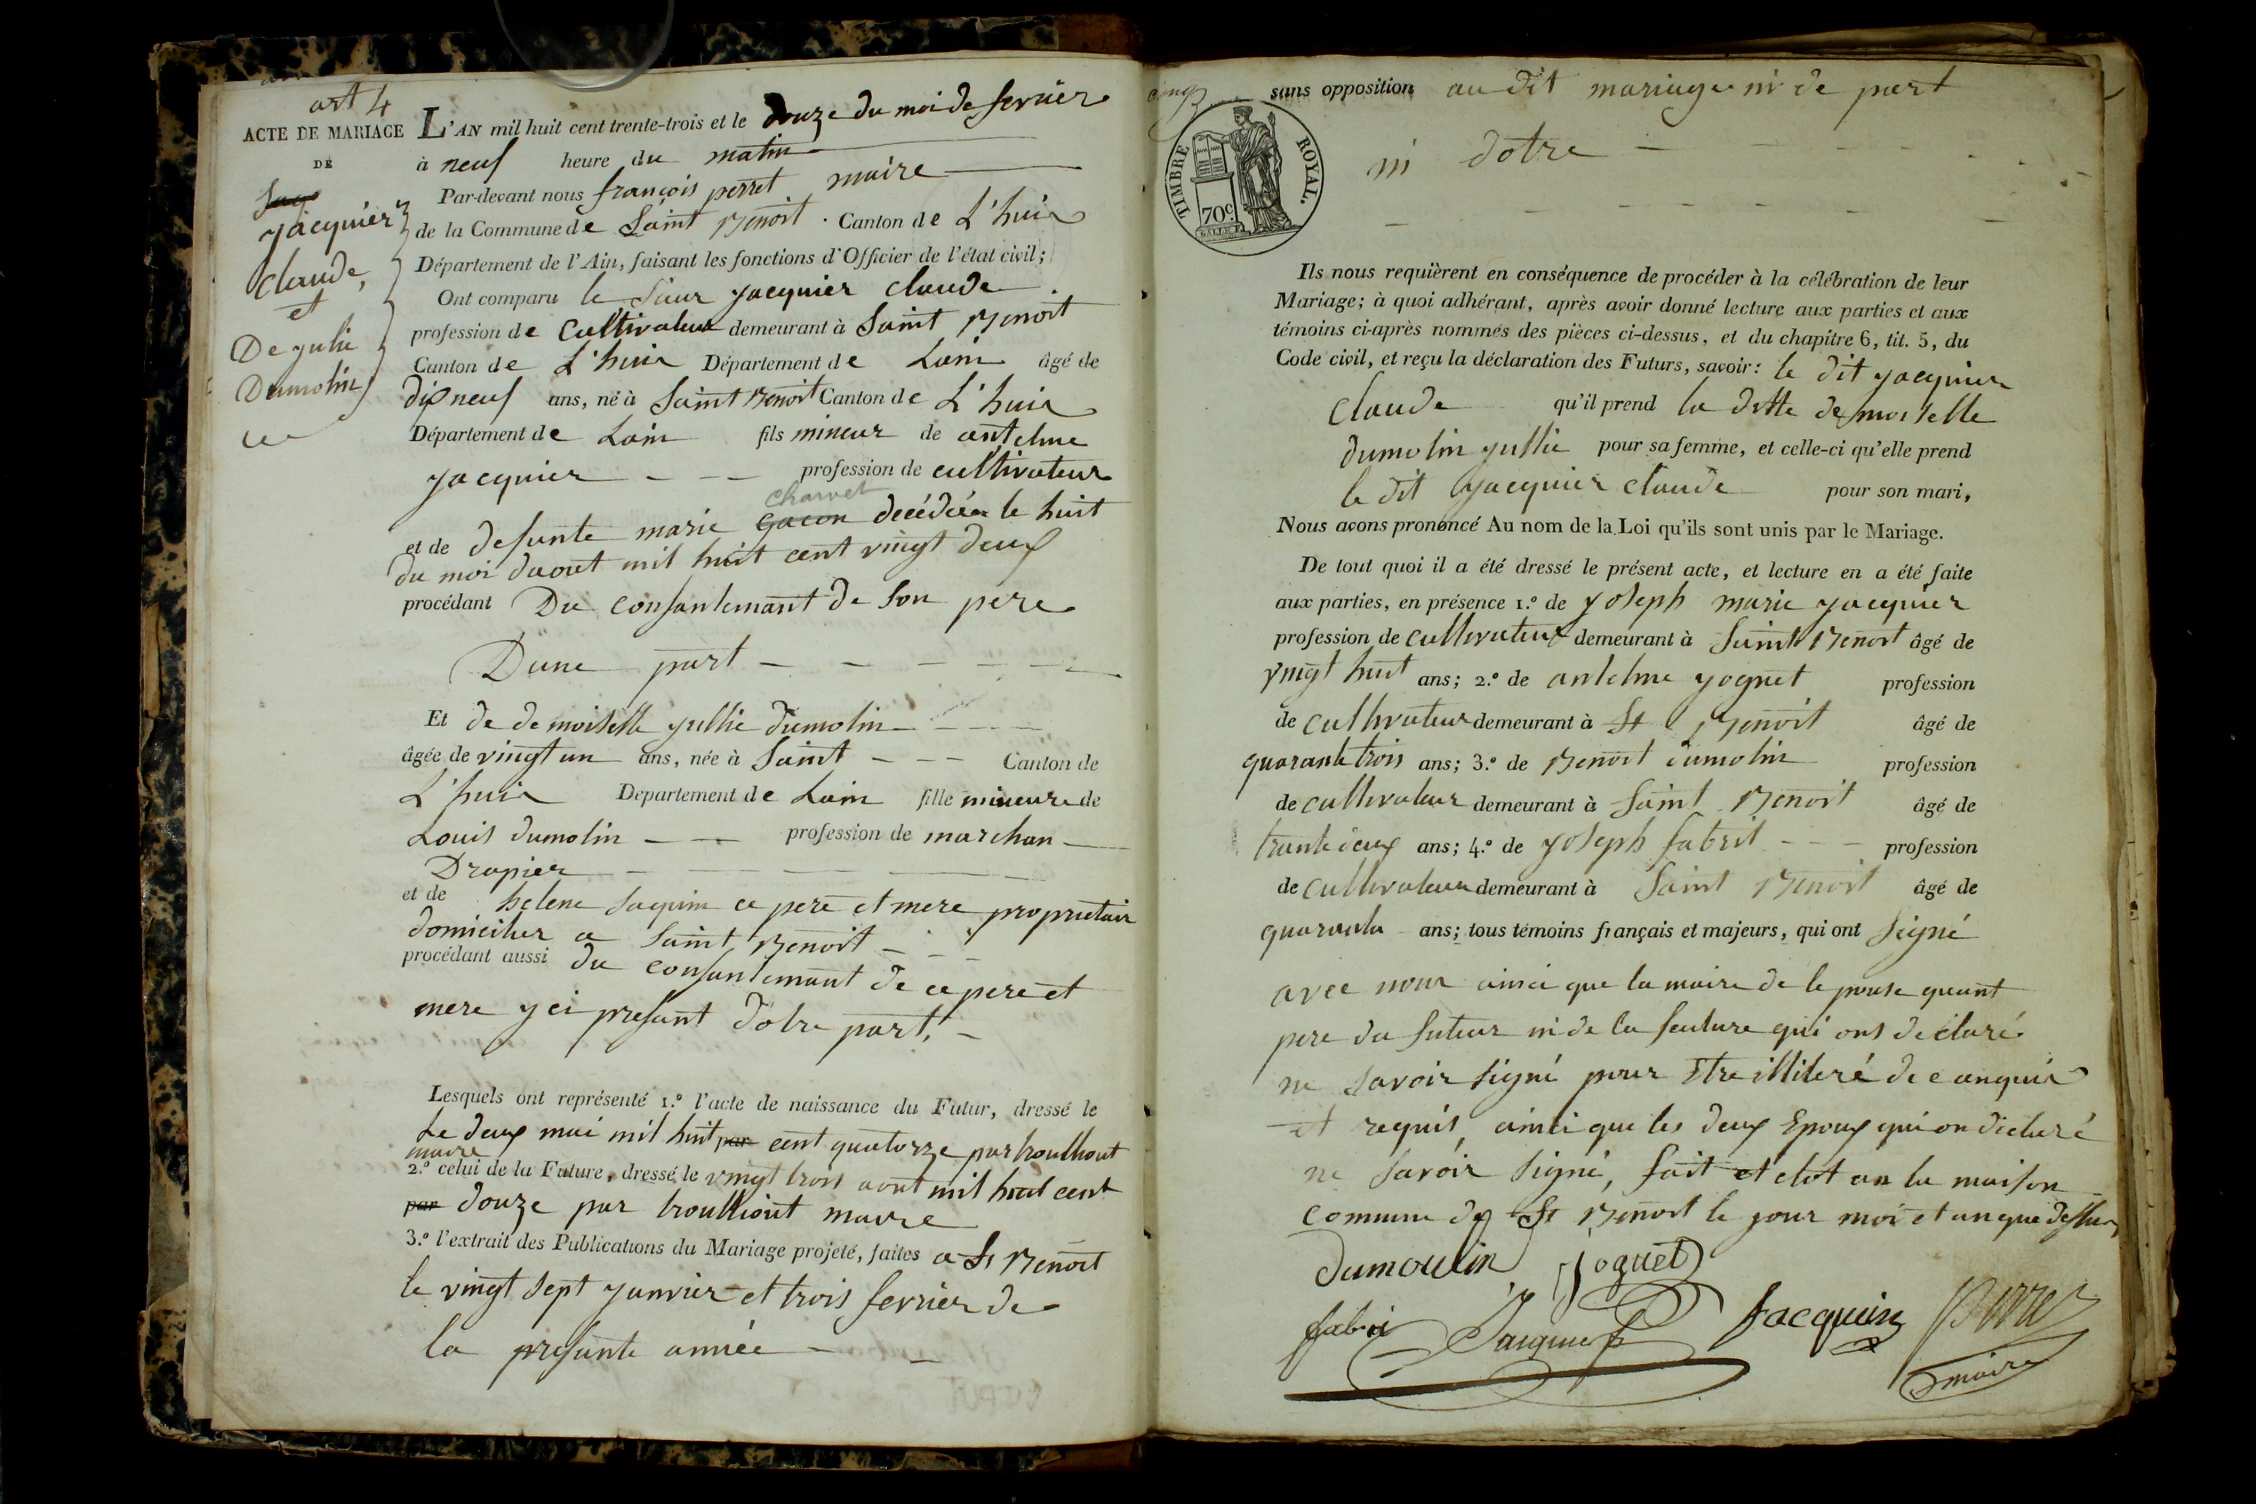 art 4
ACTE DE MARIAGE
DE
Jacquier
Claude,
et
De julie
Dumolin
L'AN mil huit cent trente-trois et le douze du moi de fevrier
à neuf heure du matin
Par-devant nous françois perret maire
de la Commune de Saint Benoit . Canton de L'huis
Département de l'Ain, faisant les fonctions d'Officier de l'état civil;
Ont comparu le sieur jacquier claude .
profession de cultivateur demeurant à Saint Benoit
Canton de L'huis Département de Lain âgé de
dixneuf ans, né à Saint Benoit Canton de L'huis
Département de Lain fils mineur de antelme
jacquier - - - profession de cultivateur
charvet
et de defunte marie gacon decédée le huit
du moi daout mil huit cent vingt deux
procédant Du consantemant de son pere
Dune part - - - - - -
Et de demoiselle jullie dumolin - - - -
âgée de vingt un ans, née à Saint - - - Canton de
L'huis Département de Lain fille mineure de
Louis dumolin - - - profession de marchan -
Drapier - - - - -
et de helene jaquin ce pere et mere proprietair
domicilier a Saint Benoit - - -
procédant aussi du consantemant de ce pere et
mere y ci presant dotre part. -
Lesquels ont représenté 1.º l'acte de naissance du Futur, dressé le
Le deux mai mil huit par cent quatorze par troulliout
maire
2.º celui de la Future, dressé le vingt trois aout mil huit cent
par douze par troulliout maire
3.º l'extrait des Publications du Mariage projeté, faites a St Benoit
le vingt sept janvier et trois fevrier de
la presante année - -
sans opposition au dit mariage ni de part
ni dotre - - - - - - -
TIMBRE ROYAL.
70c
Ils nous requièrent en conséquence de procéder à la célébration de leur
Mariage; à quoi adhérant, après avoir donné lecture aux parties et aux
témoins ci-après nommés des pièces ci-dessus, et du chapitre 6, tit. 5, du
Code civil, et reçu la déclaration des Futurs, savoir: le dit jacquier
claude qu'il prend la ditte demoiselle
dumolin jullie pour sa femme, et celle-ci qu'elle prend
le dit jacquier claude pour son mari,
Nous avons prononcé Au nom de la Loi qu'ils sont unis par le Mariage.
De tout quoi il a été dressé le présent acte, et lecture en a été faite
aux parties, en présence 1.º de joseph marie jacquier
profession de cultivateur demeurant à Saint Benoit âgé de
vingt huit ans; 2.º de antelme joguet profession
de cultivateur demeurant à St Benoit âgé de
quarante trois ans; 3.º de Benoit dumolin profession
de cultivateur demeurant à Saint Benoit âgé de
trante deux ans; 4.º de joseph fabrit - - - profession
de cultivateur demeurant à Saint Benoit âgé de
quarante ans; tous témoins français et majeurs, qui ont signé
avec nous ainci que la maire de lepouse quant
pere du futeur ni de la feuture qui ons declaré
ne savoir signé pour Etre illiteré de ce anquis
et requis, ainci que les deux Epoux qui on declaré
ne savoir signé, fait et clot an la maison
commune de St Benoit le jour moi et an que dessus
Dumoulin Joguet
fabri Jacquier Jacquin Perret
maire